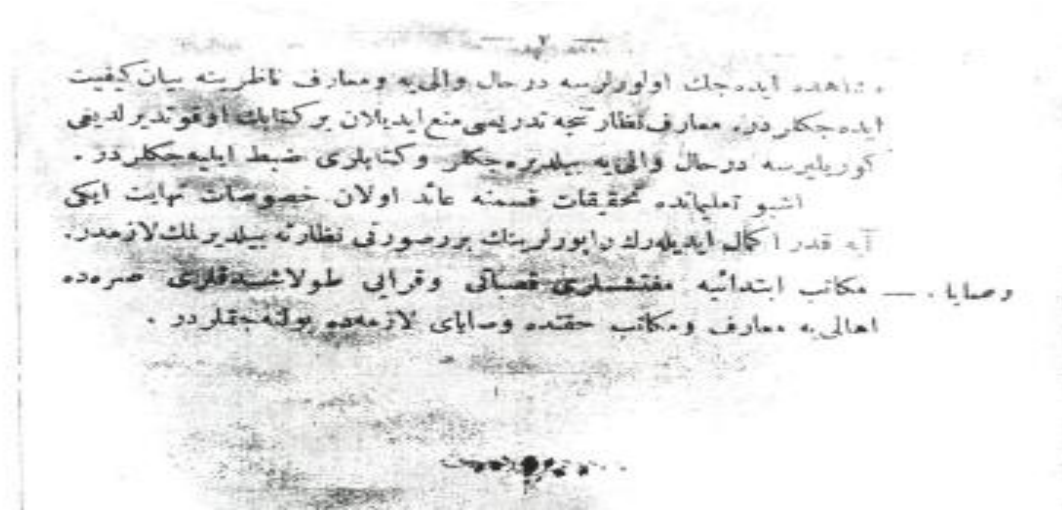 — ٧ —
مشاهده ایده‌جك اولورلرسه در حال والی‌یه و معارف ناظرینه بیان كیفیت
ایده‌جكلر در. معارف نظارتنجه تدریسی منع ایدیلان بر كتابك اوقوتدیرلدیغی
كوریلیرسه درحال والی‌یه بیلدیره‌جكلر و كتابلری ضبط ایلیه‌جكلردر .
اشبو تعلیماتده تحقیقات قسمنه عائد اولان خصوصات نهایت ایكی
آیه قدر اكمال ایدیله‌رك راپورلرینك بررصورتی نظارته بیلدیرلمك لازمدر.
وصایا . — مكاتب ابتدائیه مفتشلری قصباتی وقرایی طولاشدقلری صره‌ده
اهالی‌یه معارف ومكاتب حقنده وصایای لازمه‌ده بولنه‌جقلردر .